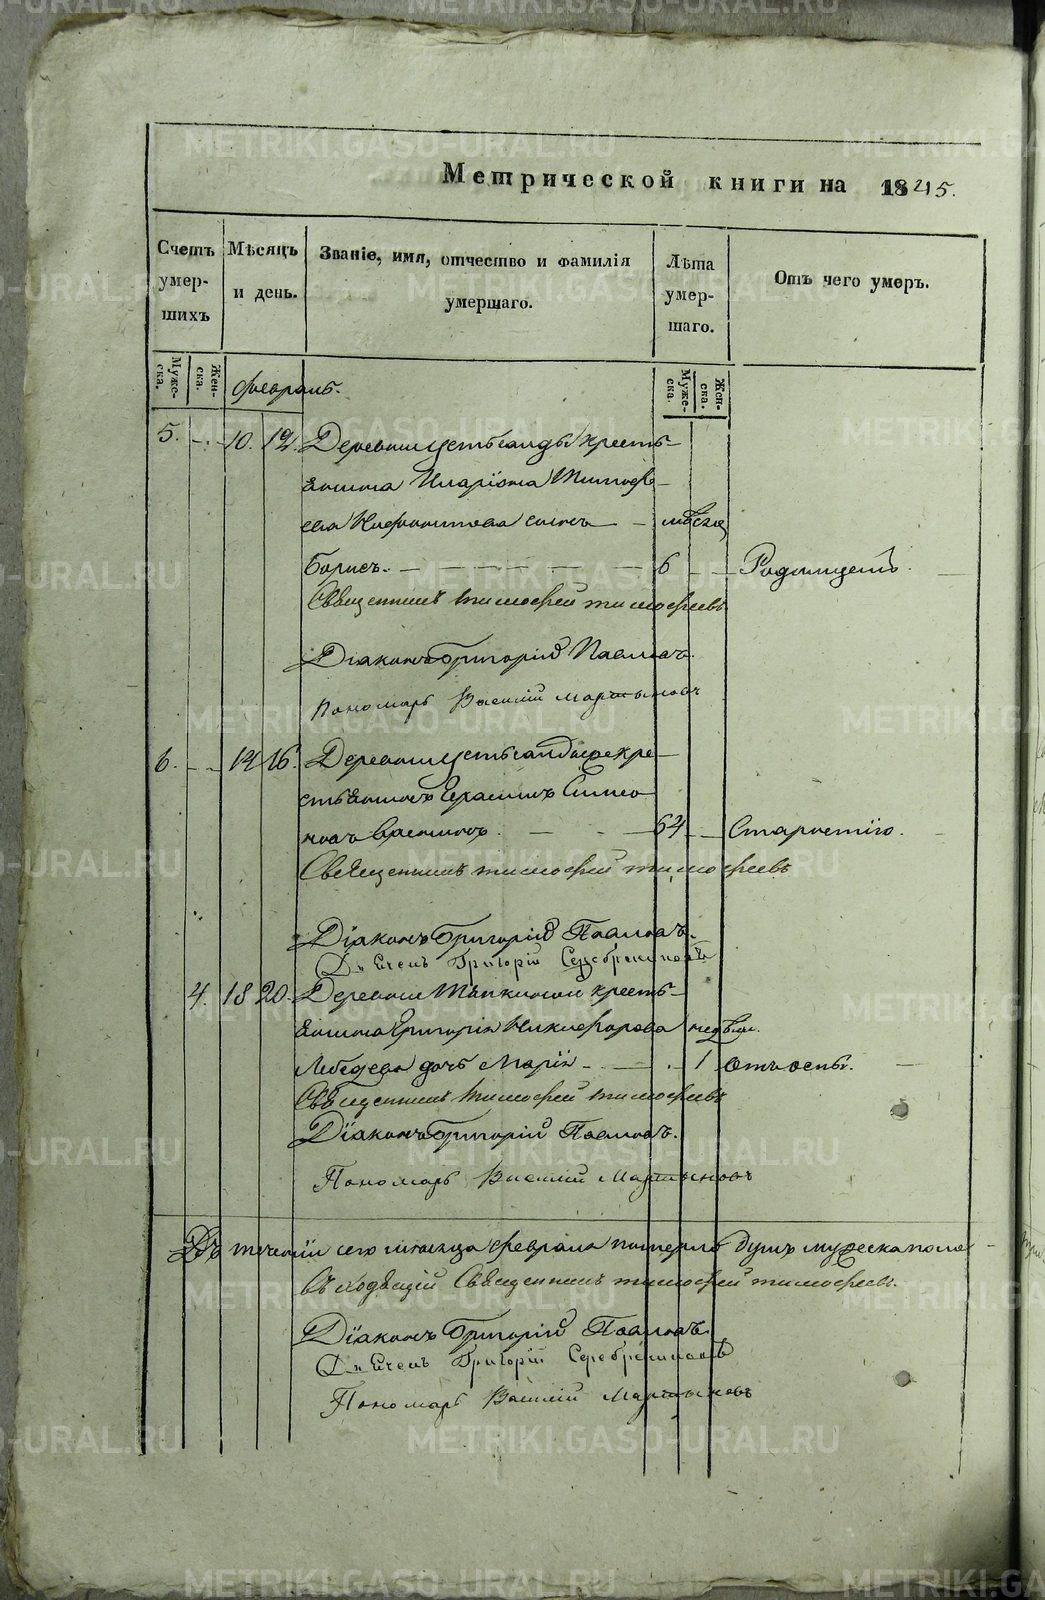 Метрической книги на 1845.
Счетъ умер-шихъ
Мѣсяцъ и день.
Званіе, имя, отчество и фамилія умершаго.
Лѣта умер-шаго.
Отъ чего умеръ.
Муже-ска.
Жен-ска.
Февраль.
Муже-ска.
Жен-ска.
5. 10. 12. Деревни кресть-
янина Иларіона Тимофе-
ева сынъ мѣсяц
Борисъ. 6 Родимцемъ.
Священникъ Тимофей Тимофеевъ
Діаконъ Григорій Павловъ.
Пономарь Василій Мартыновъ
6. 14 16. Деревни кре-
стьянинъ Герасимъ Симео
новъ 64 Старостію.
Священникъ Тимофей Тимофеевъ
Діаконъ Григорій Павловъ.
Дьячекъ Григорій Серебрениковъ
4. 18 20. Деревни Тяпкиной кресть-
янина Григорія Никифорова недѣли.
Лебедева дочь Марія 1 Отъ оспы.
Священникъ Тимофей Тимофеевъ
Діаконъ Григорій Павловъ.
Пономарь Василій Мартыновъ
Въ теченіи сего мѣсяца Февраля померло душъ мужеска пола
Священникъ Тимофей Тимофеевъ.
Діаконъ Григорій Павловъ.
Дьячекъ Григорій Серебрениковъ
Пономарь Василій Мартыновъ
METRIKI.GASO-URAL.RU